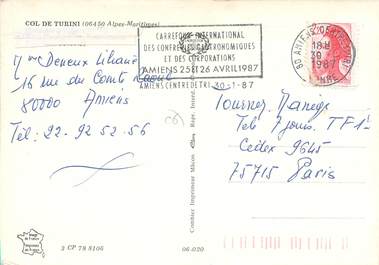 COL DE TURINI (06450 Alpes-Maritimes)
CARREFOUR INTERNATIONAL
DES CONFRERIES GASTRONOMIQUES
ET DES CORPORATIONS
AMIENS 25 ET 26 AVRIL 1987
AMIENS CENTRE DE TRI 30-1-87
80 AMIENS CENTRE DE TRI
18H
30
1987
SOMME
Mme Deneux Liliane
16 rue du Comte Raoul
80000 Amiens
Tél: 22-92 52-56
Tournez Manège
Télé 7 jours. TF 1
Cedex 9645
75715 Paris
Combier Imprimeur Mâcon
Image de France
2 CP 78 8106
06-020